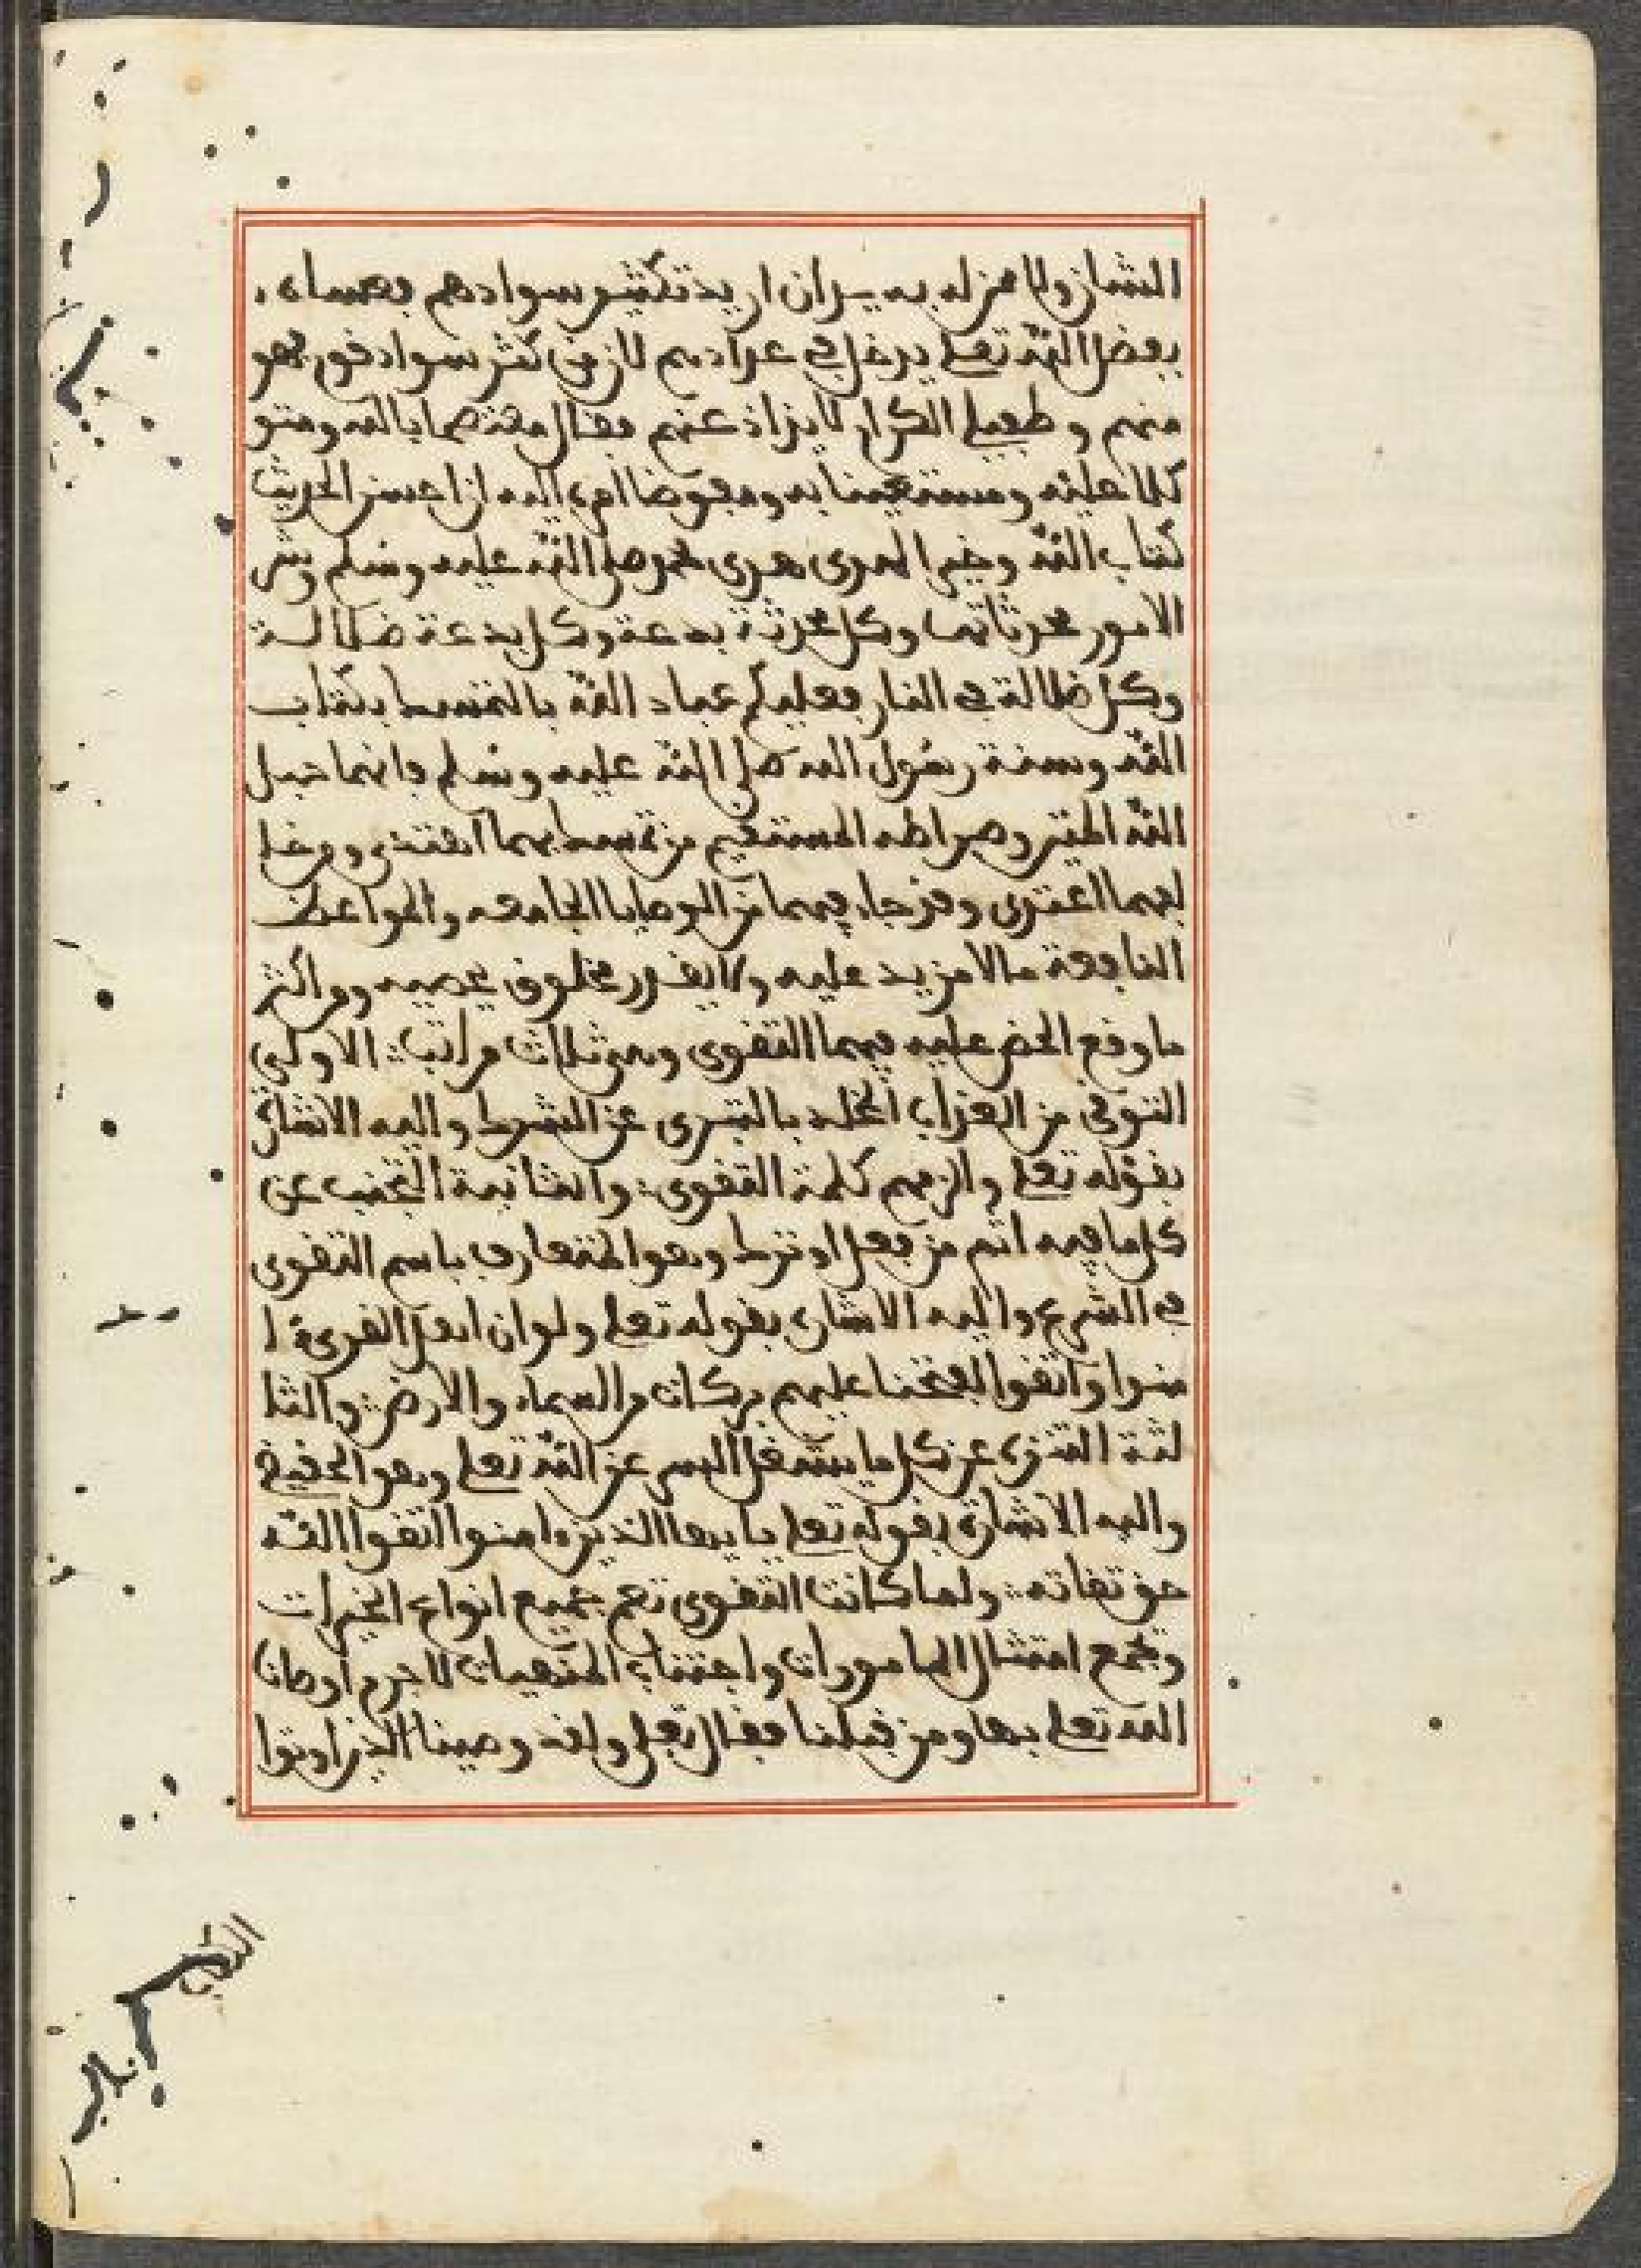 الشان ولا منزله به يدان اريد تكثير سوادهم فعساه
بفضل الله تعلى يدخل في عدادهم لان من كثر سواد قوم فهو
منهم وطفيلي الكرام لا يذاد عنهم فقال معتصما بالله ومتو
كلا عليه ومستعينا به ومفوضا امره اليه ان احسن الحديث
كتاب الله وخير الهدى هدى محمد صلى الله عليه وسلم وشر
الامور محدثاتها وكل محدثة بدعة وكل بدعة ضلالة
وكل ضلالة في النار فعليكم عباد الله بالتمسك بكتاب
الله وسنة رسول الله صلى الله عليه وسلم فانهما حبل
الله المتين وصراطه المستقيم من تمسك بهما اهتدى ومن خا
لفهما اعتدى وقد جاء فيهما من الوصايا الجامعه والمواعظ
النافعة ما لا مزيد عليه ولا يقدر مخلوق يحصيه ومن اكثر
ما وقع الحض عليه فيهما التقوى وهي ثلاث مراتب الاولى
التوقي من العذاب المخلد بالتبري عن الشرك واليه الاشارة
بقوله تعلى والزمهم كلمة التقوى والثانية التجنب عن
كل ما فيه اثم من فعل او ترك وهو المتعارف باسم التقوى
في الشرع واليه الاشارة بقوله تعلى ولو ان اهل القرى ءا
منوا واتقوا لفتحنا عليهم بركات من السماء والارض والثا
لثة التنزه عن كل ما يشغل السر عن الله تعلى وهو الحقيقة
واليه الاشارة بقوله تعلى يايها الذين ءامنوا اتقوا الله
حق تقاته ولما كانت التقوى تعم جميع انواع الخيرات
وتجمع امتثال المامورات واجتناب المنهيات لا جرم اوصانا
الله تعلى بها ومن قبلنا فقال تعلى ولقد وصينا الذين اوتوا
الكتاب